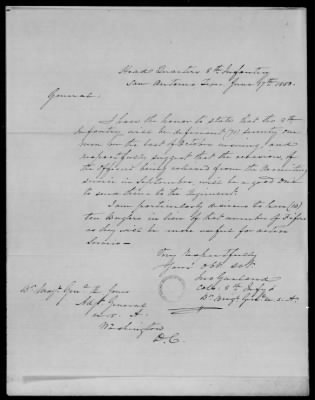 Head Quarters 8th Infantry
San Antonio Texas June 17th 1850.
General
I have the honor to state that the 8th
Infantry will be deficient (71) Seventy one
men for the last of October coming, and
respectfully suggest that the of
the Officers being relieved from the Recruiting
service in September, will be a good one
to send them to the Regiment.
I am particularly anxious to have (10)
ten Buglers in lieu of that number of Fifers
as they will be more useful for active
Service—
Very Respectfully
Your Obt Sert
Jno Garland
Col. 8th Infy &
Bt Brigr Genl U. S. A.
Bt Majr Genl R Jones
Adjt General
U. S. A.
Washington
D. C.